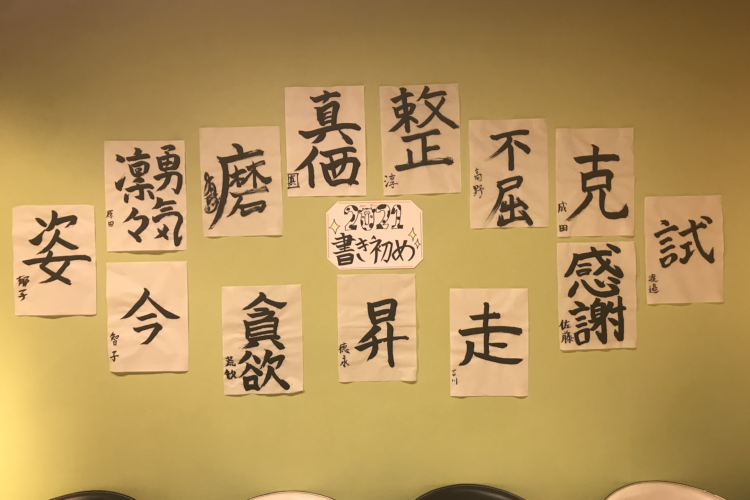 2021
書き初め
姿
郁子
勇気
凛々
今
智子
磨
真価
貪欲
整
淳
昇
徳永
不屈
高野
走
克
成田
感謝
佐藤
試
渡邉